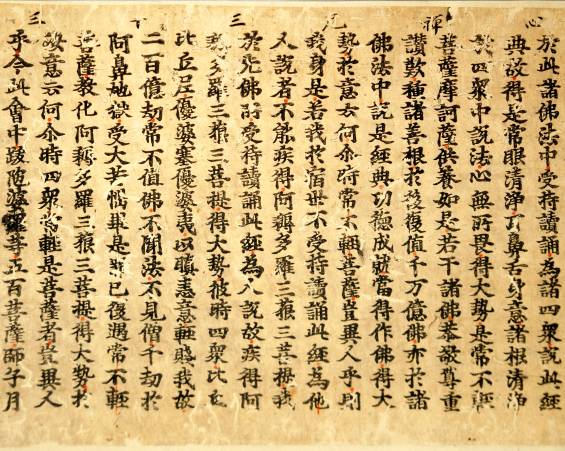 於此諸佛法中受持讀誦為諸四眾說此經
典故得是常眼清淨耳鼻舌身意諸根清淨
於四眾中說法心無所畏得大勢是常不輕
菩薩摩訶薩供養如是若干諸佛恭敬尊重
讚歎種諸善根於後復值千万億佛亦於諸
佛法中說是經典功德成就當得作佛得大
勢於意云何尒時常不輕菩薩豈異人乎則
我身是若我於宿世不受持讀誦此經為他
人說者不能疾得阿耨多羅三藐三菩提我
於先佛所受持讀誦此經為人說故疾得阿
耨多羅三藐三菩提得大勢彼時四眾比丘
比丘尼優婆塞優婆夷以瞋恚意輕賤我故
二百億劫常不值佛不聞法不見僧千劫於
阿鼻地獄受大苦惱畢是罪已復遇常不輕
菩薩教化阿耨多羅三藐三菩提得大勢於
汝意云何尒時四眾常輕是菩薩者豈異人
乎今此會中跋陀婆羅等五百菩薩師子月